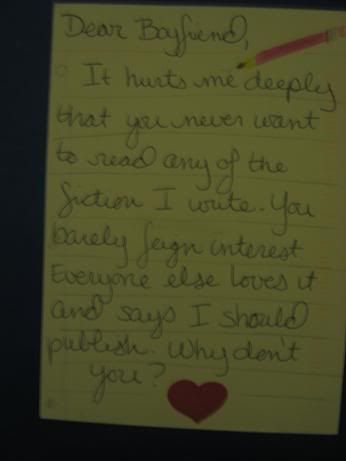 Dear Boyfriend,
It hurts me deeply
that you never want
to read any of the
fiction I write. You
barely feign interest.
Everyone else loves it
and says I should
publish. Why don't
you?